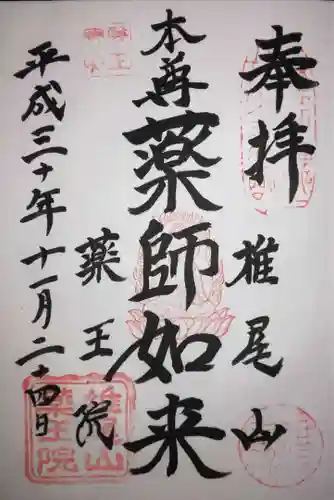 奉拝
椎尾山
本尊
薬師如来
薬王院
平成三十年十一月二十四日
椎尾山
薬王院